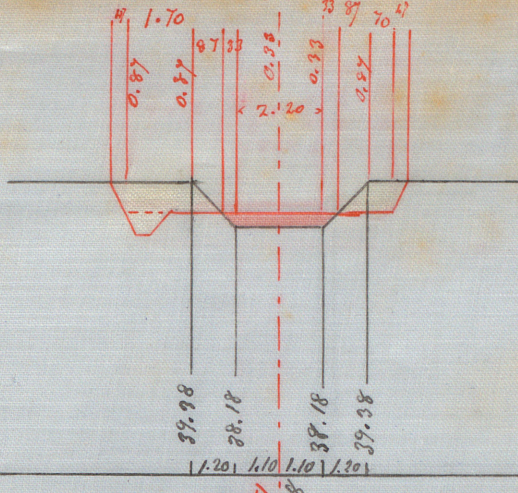 47 1.70 87 33 33 87 70 47
0.87 0.87 0.33 0.33 0.87
2.20
39.38 38.18 38.18 39.38
1.20 1.10 1.10 1.20